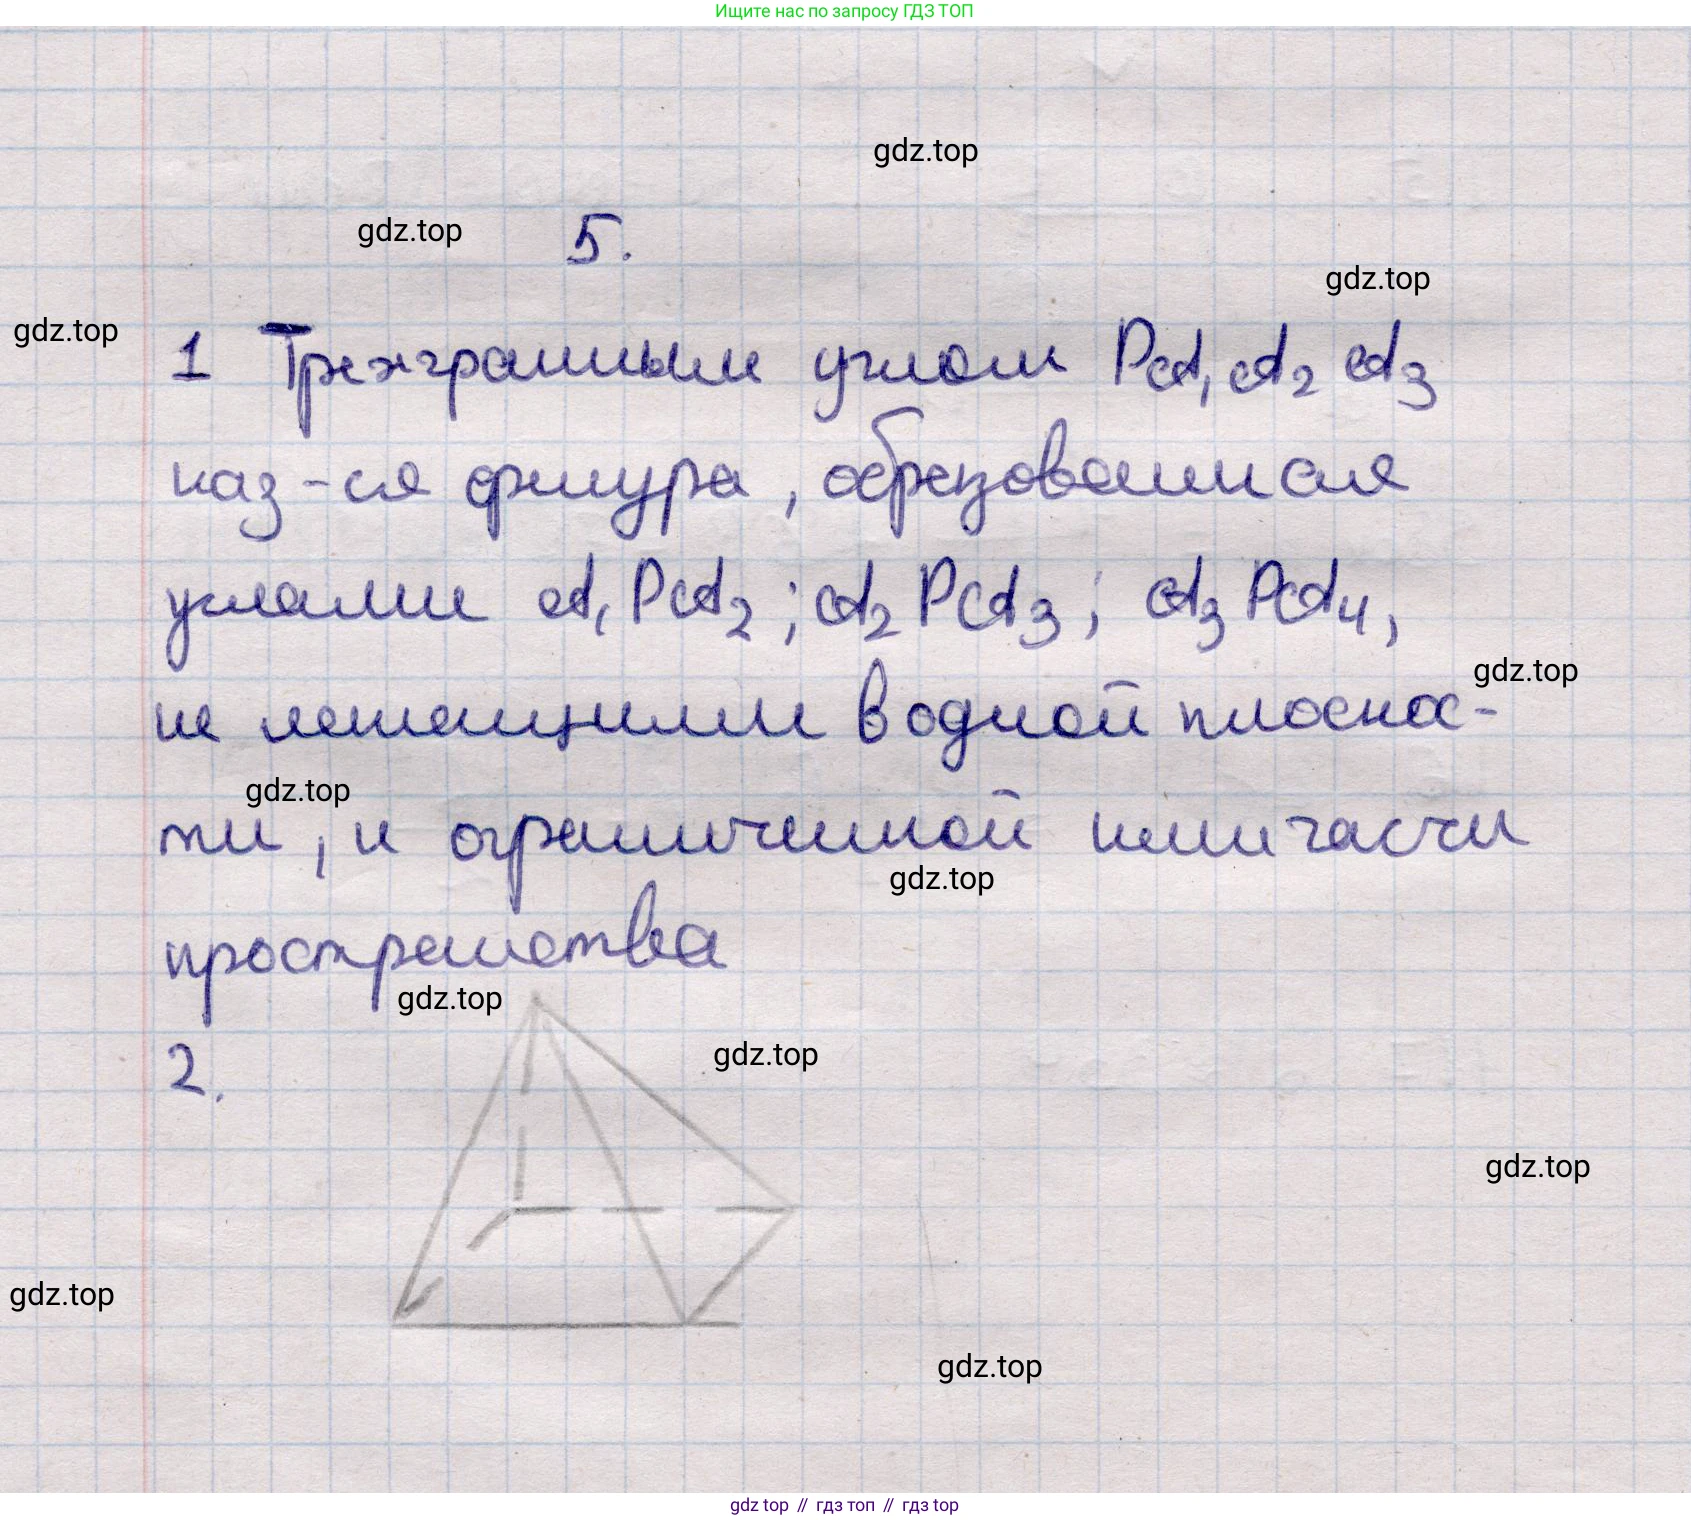 Ищите нас по запросу ГДЗ ТОП
gdz.top
gdz.top 5.
gdz.top
gdz.top
1 Трехгранным углом Pa₁a₂a₃
наз-ся фигура, образованная
углами a₁Pa₂; a₂Pa₃; a₃Pa₄,
gdz.top
не лежащими в одной плоскос-
gdz.top
ти, и ограниченной ими части
gdz.top
пространства
gdz.top
2.
gdz.top
gdz.top
gdz.top
gdz.top
gdz top // гдз топ // гдз top